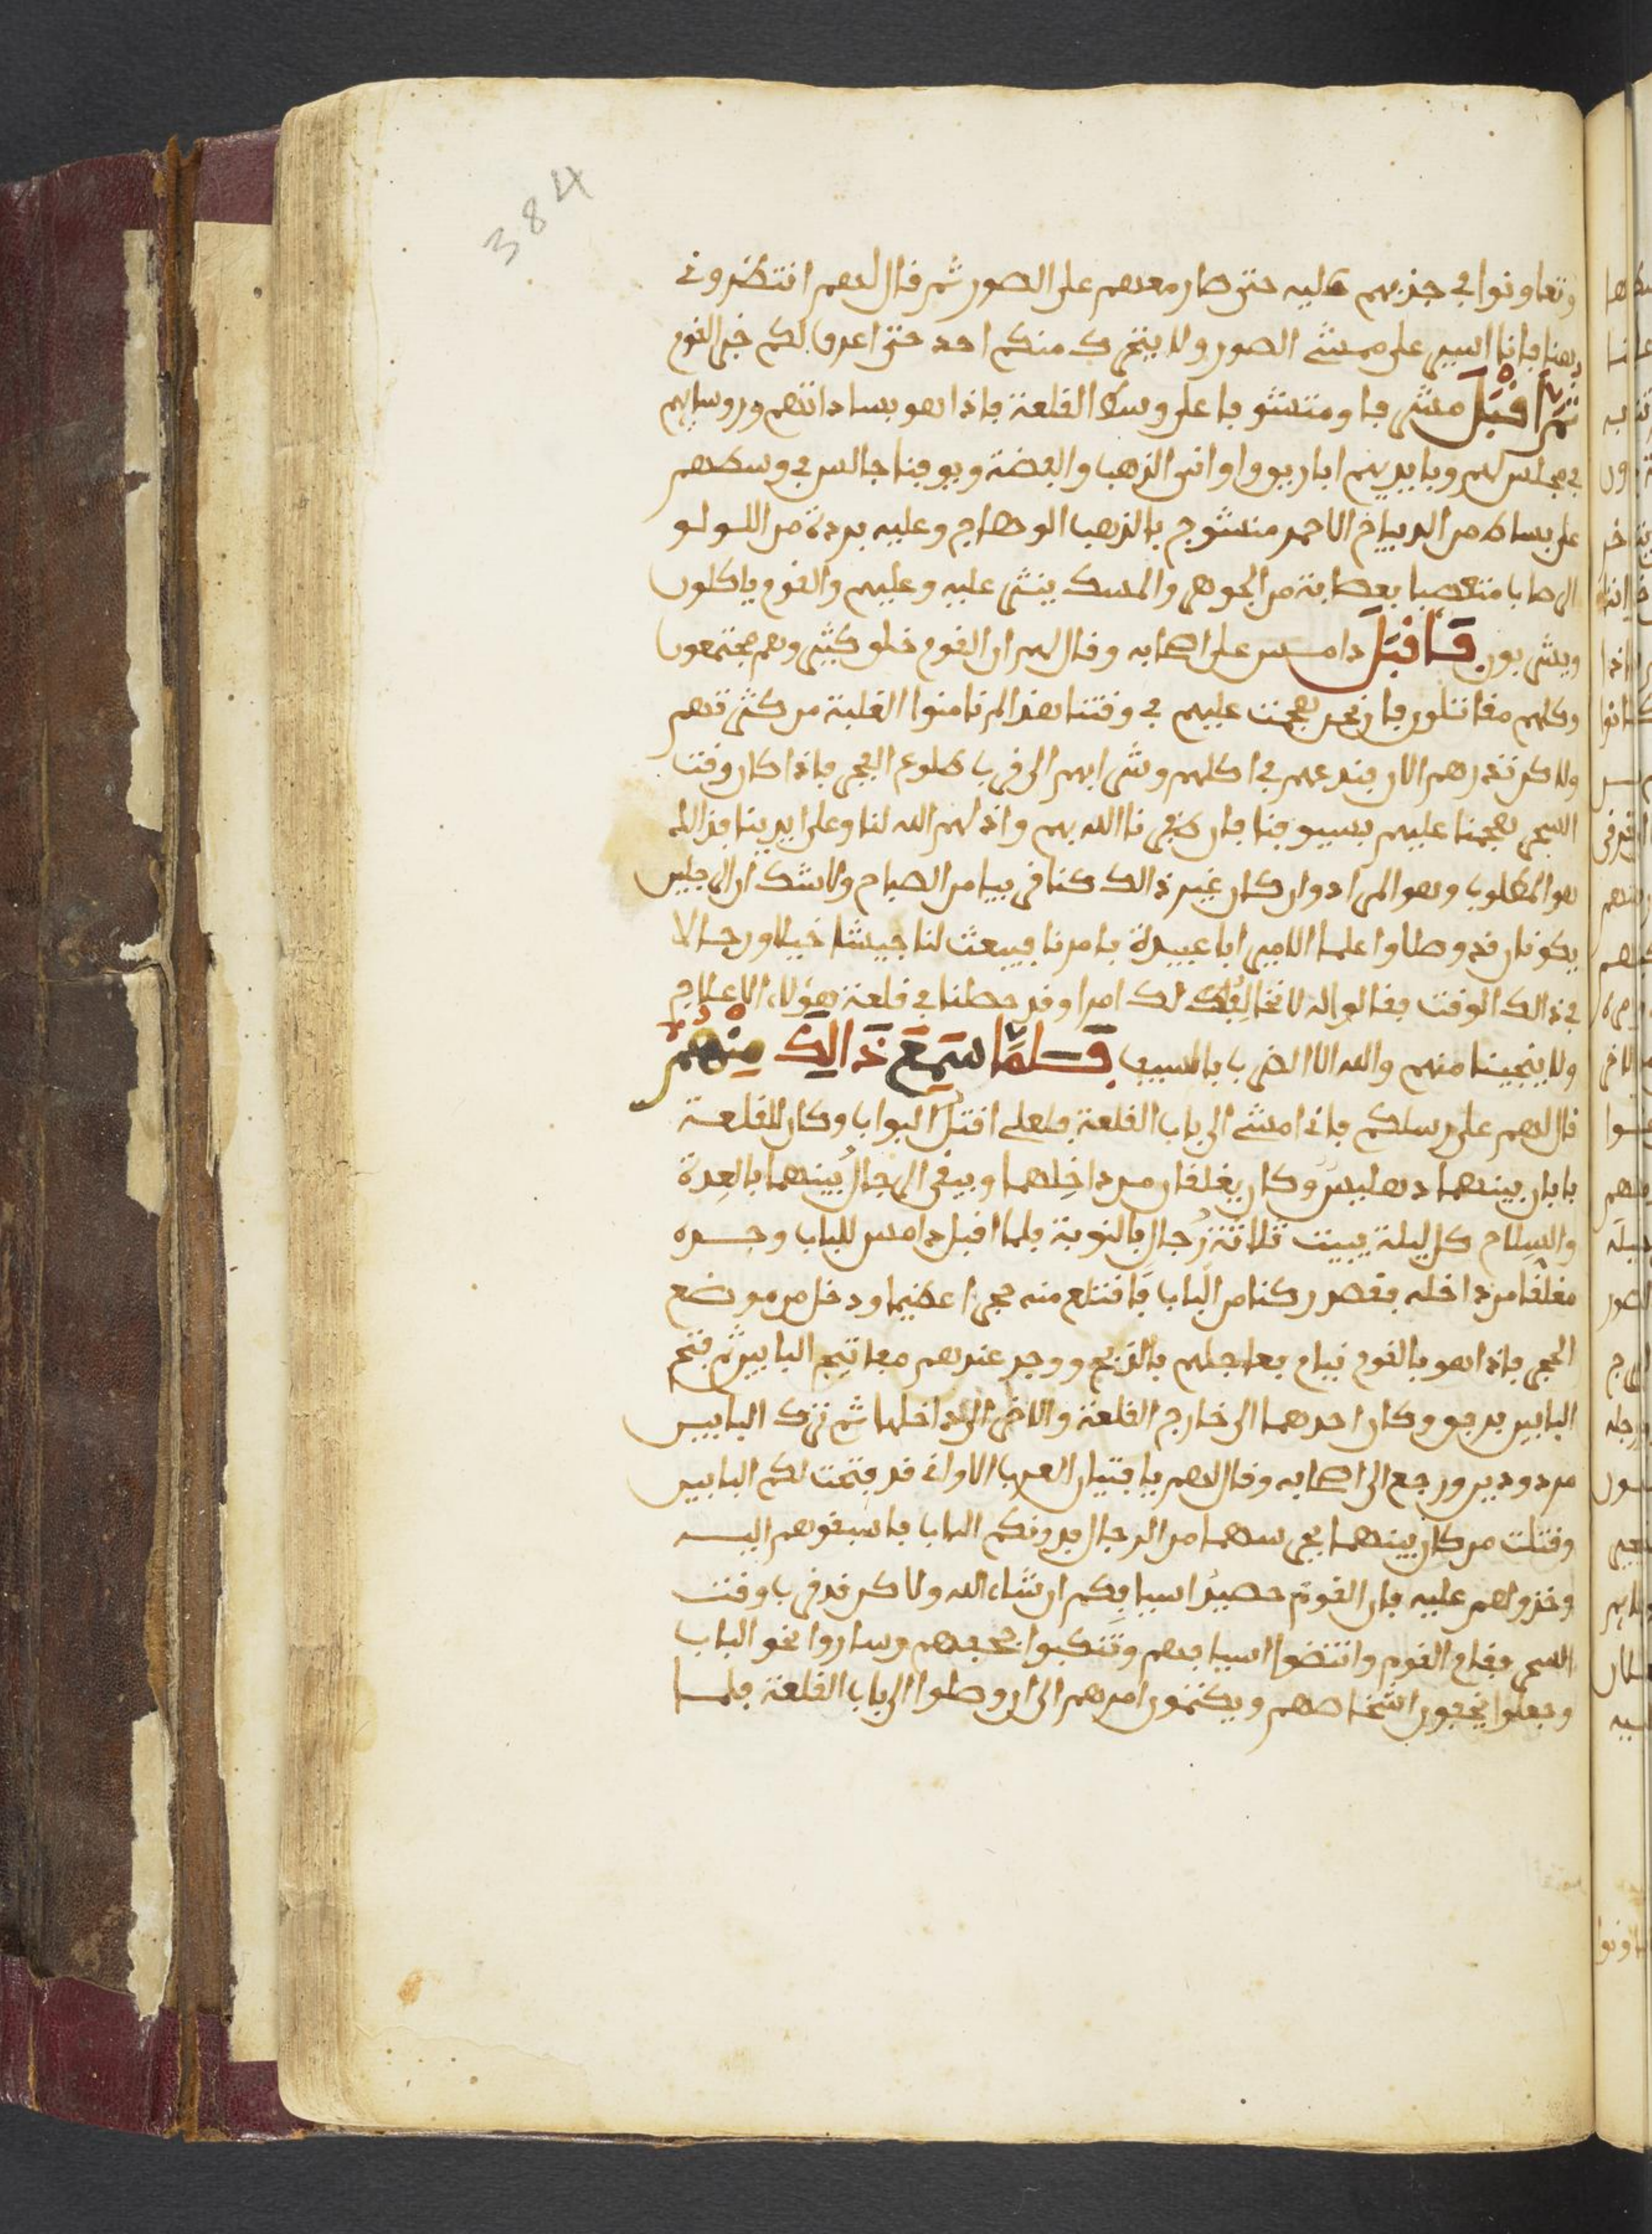 384
وتعاونوا في جذبهم عليه حتى صار معهم على الصور ثم قال لهم انتظروني
هنا فانا اسير على ممشى الصور ولا يتحرك منكم احد حتى اعرف لكم خبر القوم
ثم اقبل مشى فا ومتشوفا على وسط القلعة فاذا هو بساداتهم وروسايهم
في مجلس لهم وبايديهم اباريق واواني الذهب والفضة ويوقنا جالس في وسطهم
على بساط من الديباج الاحمر منسوج بالذهب الوهاج وعليه بردة من اللولو
الرطاب متعصبا بعصابة من الجوهر والمسك ينثر عليه وعليهم والقوم ياكلون
ويشربون فاقبل دامس على اصحابه وقال لهم ان القوم خلق كثير وهم مجتمعون
وكلهم مقاتلون فان نحن هجمنا عليهم في وقتنا هذا لم نامنوا الغلبة من كثرتهم
ولاكن نذرهم الان فندعهم في اكلهم وشرابهم الى قرب طلوع الفجر فاذا كان وقت
السحر هجمنا عليهم بسيوفنا فان ظفرنا الله بهم واذلهم الله لنا وعلى ايدينا فذالك
هو المطلوب وهو المراد وان كان غير ذالك كنا قريبا من الصباح ولا شك ان الرجلين
يكونان قد وصلوا اعلما الامير ابا عبيدة بامرنا فيبعث لنا جيشا خيلا ورجالا
في ذالك الوقت فقالوا له لا نخالف لك امرا وقد حصلنا في قلعة هؤلاء الاعلاج
ولا ينجينا منهم والله الا الضرب بالسيف فلما سمع ذالك منهم
قال لهم على رسلكم فاني امشي الى باب القلعة فلعلي اقتل البواب وكان للقلعة
بابان بينهما دهليس وكان يغلقان من داخلهما ويبقى الرجال بينهما بالعدة
والسلام كل ليلة يبيت ثلاثة رجال بالنوبة فلما اقبل دامس للباب وجده
مغلقا من داخله فقصد ركنا من الباب فاقتلع منه حجرا عظيما ودخل من موضع
الحجر فاذا هو بالقوم نيام فعاجلهم بالذبح ووجد عندهم مفاتيح البابين ثم فتح
البابين برفق وكان احدهما الى خارج القلعة والاخر الى داخلها ثم ترك البابين
مردودين ورجع الى اصحابه وقال لهم يا فتيان العرب الاواني قد فتحت لكم البابين
وقتلت من كان بينهما يحرسهما من الرجال فدونكم الباب فاسبقوهم اليه
وخذوهم عليه فان القوم حصيد اسيافكم ان شاء الله ولاكن قد قرب وقت
السحر فقام القوم وانتضوا اسيافهم وتنكبوا حجفهم وساروا نحو الباب
وجعلوا يخفون اشخاصهم ويكتمون امرهم الى ان وصلوا الى باب القلعة فلما